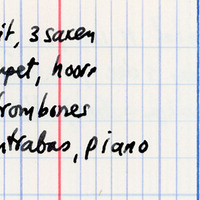 it, 3 saxen
pet, hoorn
trombones
ntrabas, piano